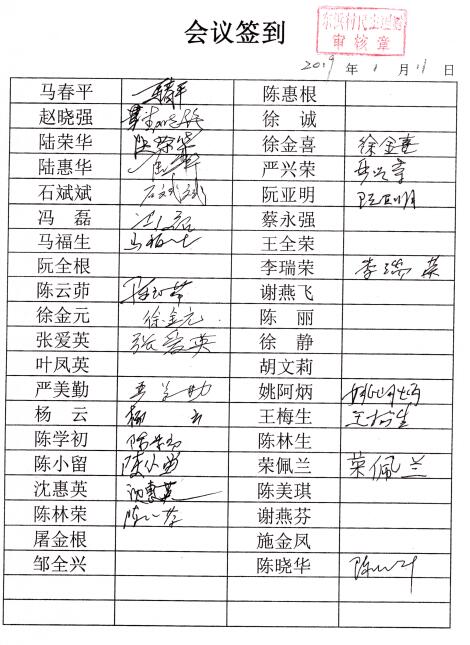 会议签到
审核章
2019 年 1 月 11 日
马春平 陈惠根
赵晓强 徐 诚
陆荣华 陆荣华 徐金喜 徐金喜
陆惠华 严兴荣
石斌斌 石斌斌 阮亚明 阮亚明
冯 磊 冯磊 蔡永强
马福生 马福生 王全荣
阮全根 李瑞荣 李瑞荣
陈云茆 谢燕飞
徐金元 徐金元 陈 丽
张爱英 张爱英 徐 静
叶凤英 胡文莉
严美勤 姚阿炳
杨 云 杨云 王梅生 王梅生
陈学初 陈学初 陈林生
陈小留 陈小留 荣佩兰 荣佩兰
沈惠英 沈惠英 陈美琪
陈林荣 谢燕芬
屠金根 施金凤
邹全兴 陈晓华